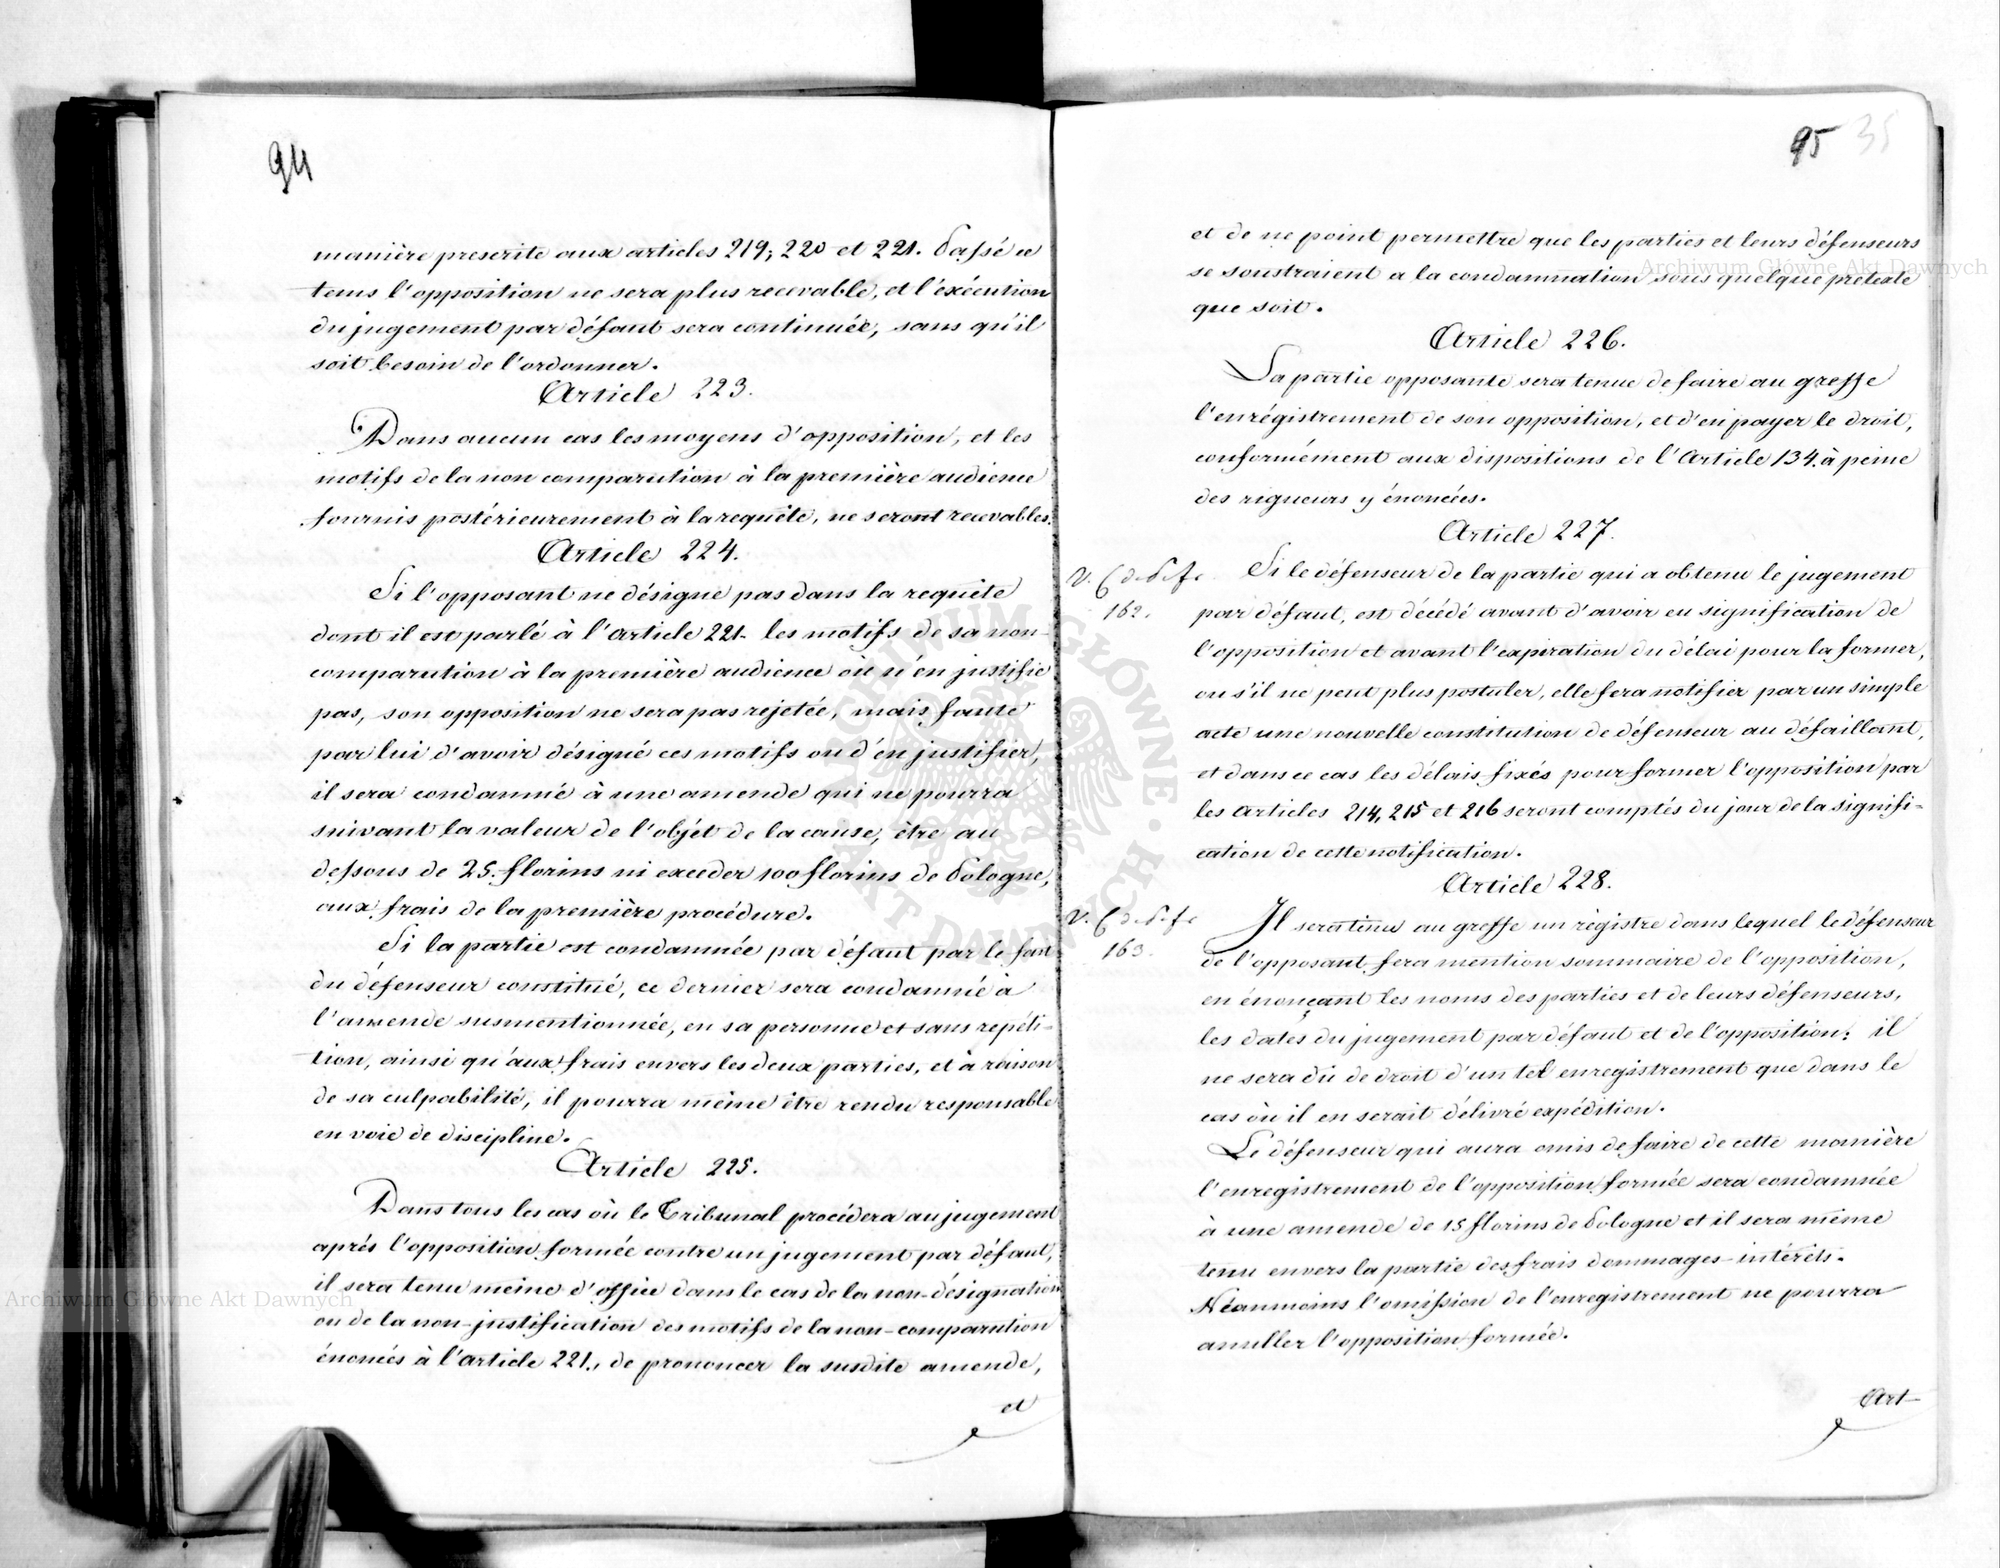 94
manière prescrite aux articles 219, 220 et 221. Passé ce
tems l'opposition ne sera plus recevable, et l'exécution
du jugement par défaut sera continuée, sans qu'il
soit besoin de l'ordonner.
Article 223.
Dans aucun cas les moyens d'opposition, et les
motifs de la non comparution à la première audience
fournis postérieurement à la requête, ne seront recevables.
Article 224.
Si l'opposant ne désigne pas dans la requête
dont il est parlé à l'article 221. les motifs de sa non-
comparution à la première audience où n'en justifie
pas, son opposition ne sera pas rejetée, mais faute
par lui d'avoir désigné ces motifs ou d'en justifier,
il sera condamné à une amende qui ne pourra
suivant la valeur de l'objet de la cause, être au
dessous de 25. florins ni exceder 100 florins de Pologne,
aux frais de la première procédure.
Si la partie est condamnée par défaut par le fait
du défenseur constitué, ce dernier sera condamné à
l'amende susmentionnée, en sa personne et sans repéti-
tion, ainsi qu'aux frais envers les deux parties, et à raison
de sa culpabilité, il pourra même être rendu responsable
en voie de discipline.
Article 225.
Dans tous les cas où le Tribunal procédera au jugement
après l'opposition formée contre un jugement par défaut,
il sera tenu même d'office dans le cas de la non-désignation
ou de la non-justification des motifs de la non-comparution
énoncés à l'article 221., de prononcer la susdite amende,
et
95 35
et de ne point permettre que les parties et leurs défenseurs
se soustraient a la condamnation sous quelque prétexte
que soit.
Article 226.
La partie opposante sera tenue de faire au greffe
l'enrégistrement de son opposition, et d'en payer le droit,
conformément aux dispositions de l'Article 134. à peine
des rigueurs y énoncées.
Article 227.
V. C. d. P. fr.
162.
Si le défenseur de la partie qui a obtenu le jugement
par défaut, est décédé avant d'avoir eu signification de
l'opposition et avant l'expiration du délai pour la former,
ou s'il ne peut plus postuler, elle fera notifier par un simple
acte une nouvelle constitution de défenseur au défaillant,
et dans ce cas les délais fixés pour former l'opposition par
les articles 214, 215 et 216 seront comptés du jour de la signifi-
cation de cette notification.
Article 228.
V. C. d. P. fr.
163.
Il sera tenu au greffe un régistre dans lequel le défenseur
de l'opposant fera mention sommaire de l'opposition,
en énonçant les noms des parties et de leurs défenseurs,
les dates du jugement par défaut et de l'opposition; il
ne sera dû de droit d'un tel enregistrement que dans le
cas où il en serait délivré expédition.
Le défenseur qui aura omis de faire de cette manière
l'enregistrement de l'opposition formée sera condamnée
à une amende de 15 florins de Pologne et il sera même
tenu envers la partie des frais dommages-intérêts.
Néanmoins l'omission de l'enregistrement ne pourra
annuller l'opposition formée.
Art
Archiwum Główne Akt Dawnych
Archiwum Główne Akt Dawnych
ARCHIWUM GŁÓWNE AKT DAWNYCH